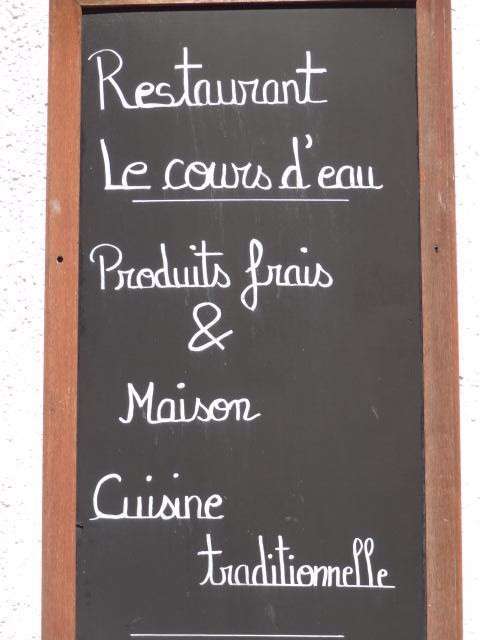 Restaurant
Le cours d'eau
Produits frais
&
Maison
Cuisine
traditionnelle